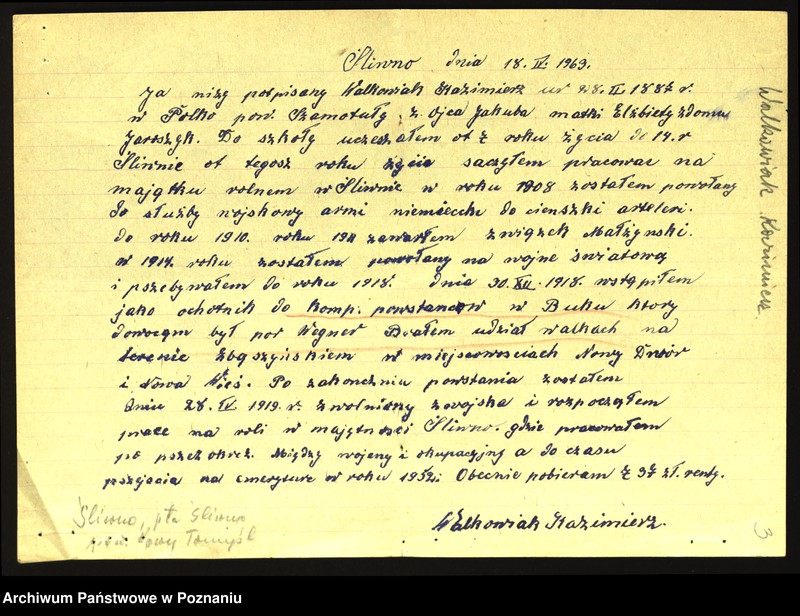 Śliwno dnia 18.IV.1963.
Ja niżg potpisany Walkowiak Kazimierz ur 28.II.1887 r.
w Polko pow. Szamotuły z ojca Jakuba matki Elżbiety zdomu
Jaroszyk. Do szkoły uczeszałem ot 7 roku życia do 14.r
Śliwnie ot tegosz roku życia saczyłem pracowac na
majątku rolnem w Śliwnie w roku 1908 zostałem powołany
do służby wojskowy armi niemiecki do cienszki arteleri.
do roku 1910. roku zawarłem związek Małżynski.
w 1914. roku zostałem powołany na wojne światową
i pszebywałem do roku 1918. dnia 30.XII.1918. wstąpiłem
jako ochotnik do komp. powstanców w Buku ktory
dowocym był por Wegner Brałem udział walkach na
terenie Zbąszyńskiem w miejscowosciach Nowy Dwór
i Nowa Wieś. Po zakonczniu powstania zostałem
dniu 28.IV 1919.r. zwolniony zwojska i rozpoczełem
prace na roli w majętnosci Śliwno. gdzie pracowałem
po pszez okres. Między wojeny i okupacyjny a do czasu
pszejscia na emeryture w roku 1952. Obecnie pobieram 737 zł. renty.
Walkowiak Kazimierz.
Walkowiak Kazimierz
Śliwno, pta Śliwno
pow. Nowy Tomyśl
3
Archiwum Państwowe w Poznaniu